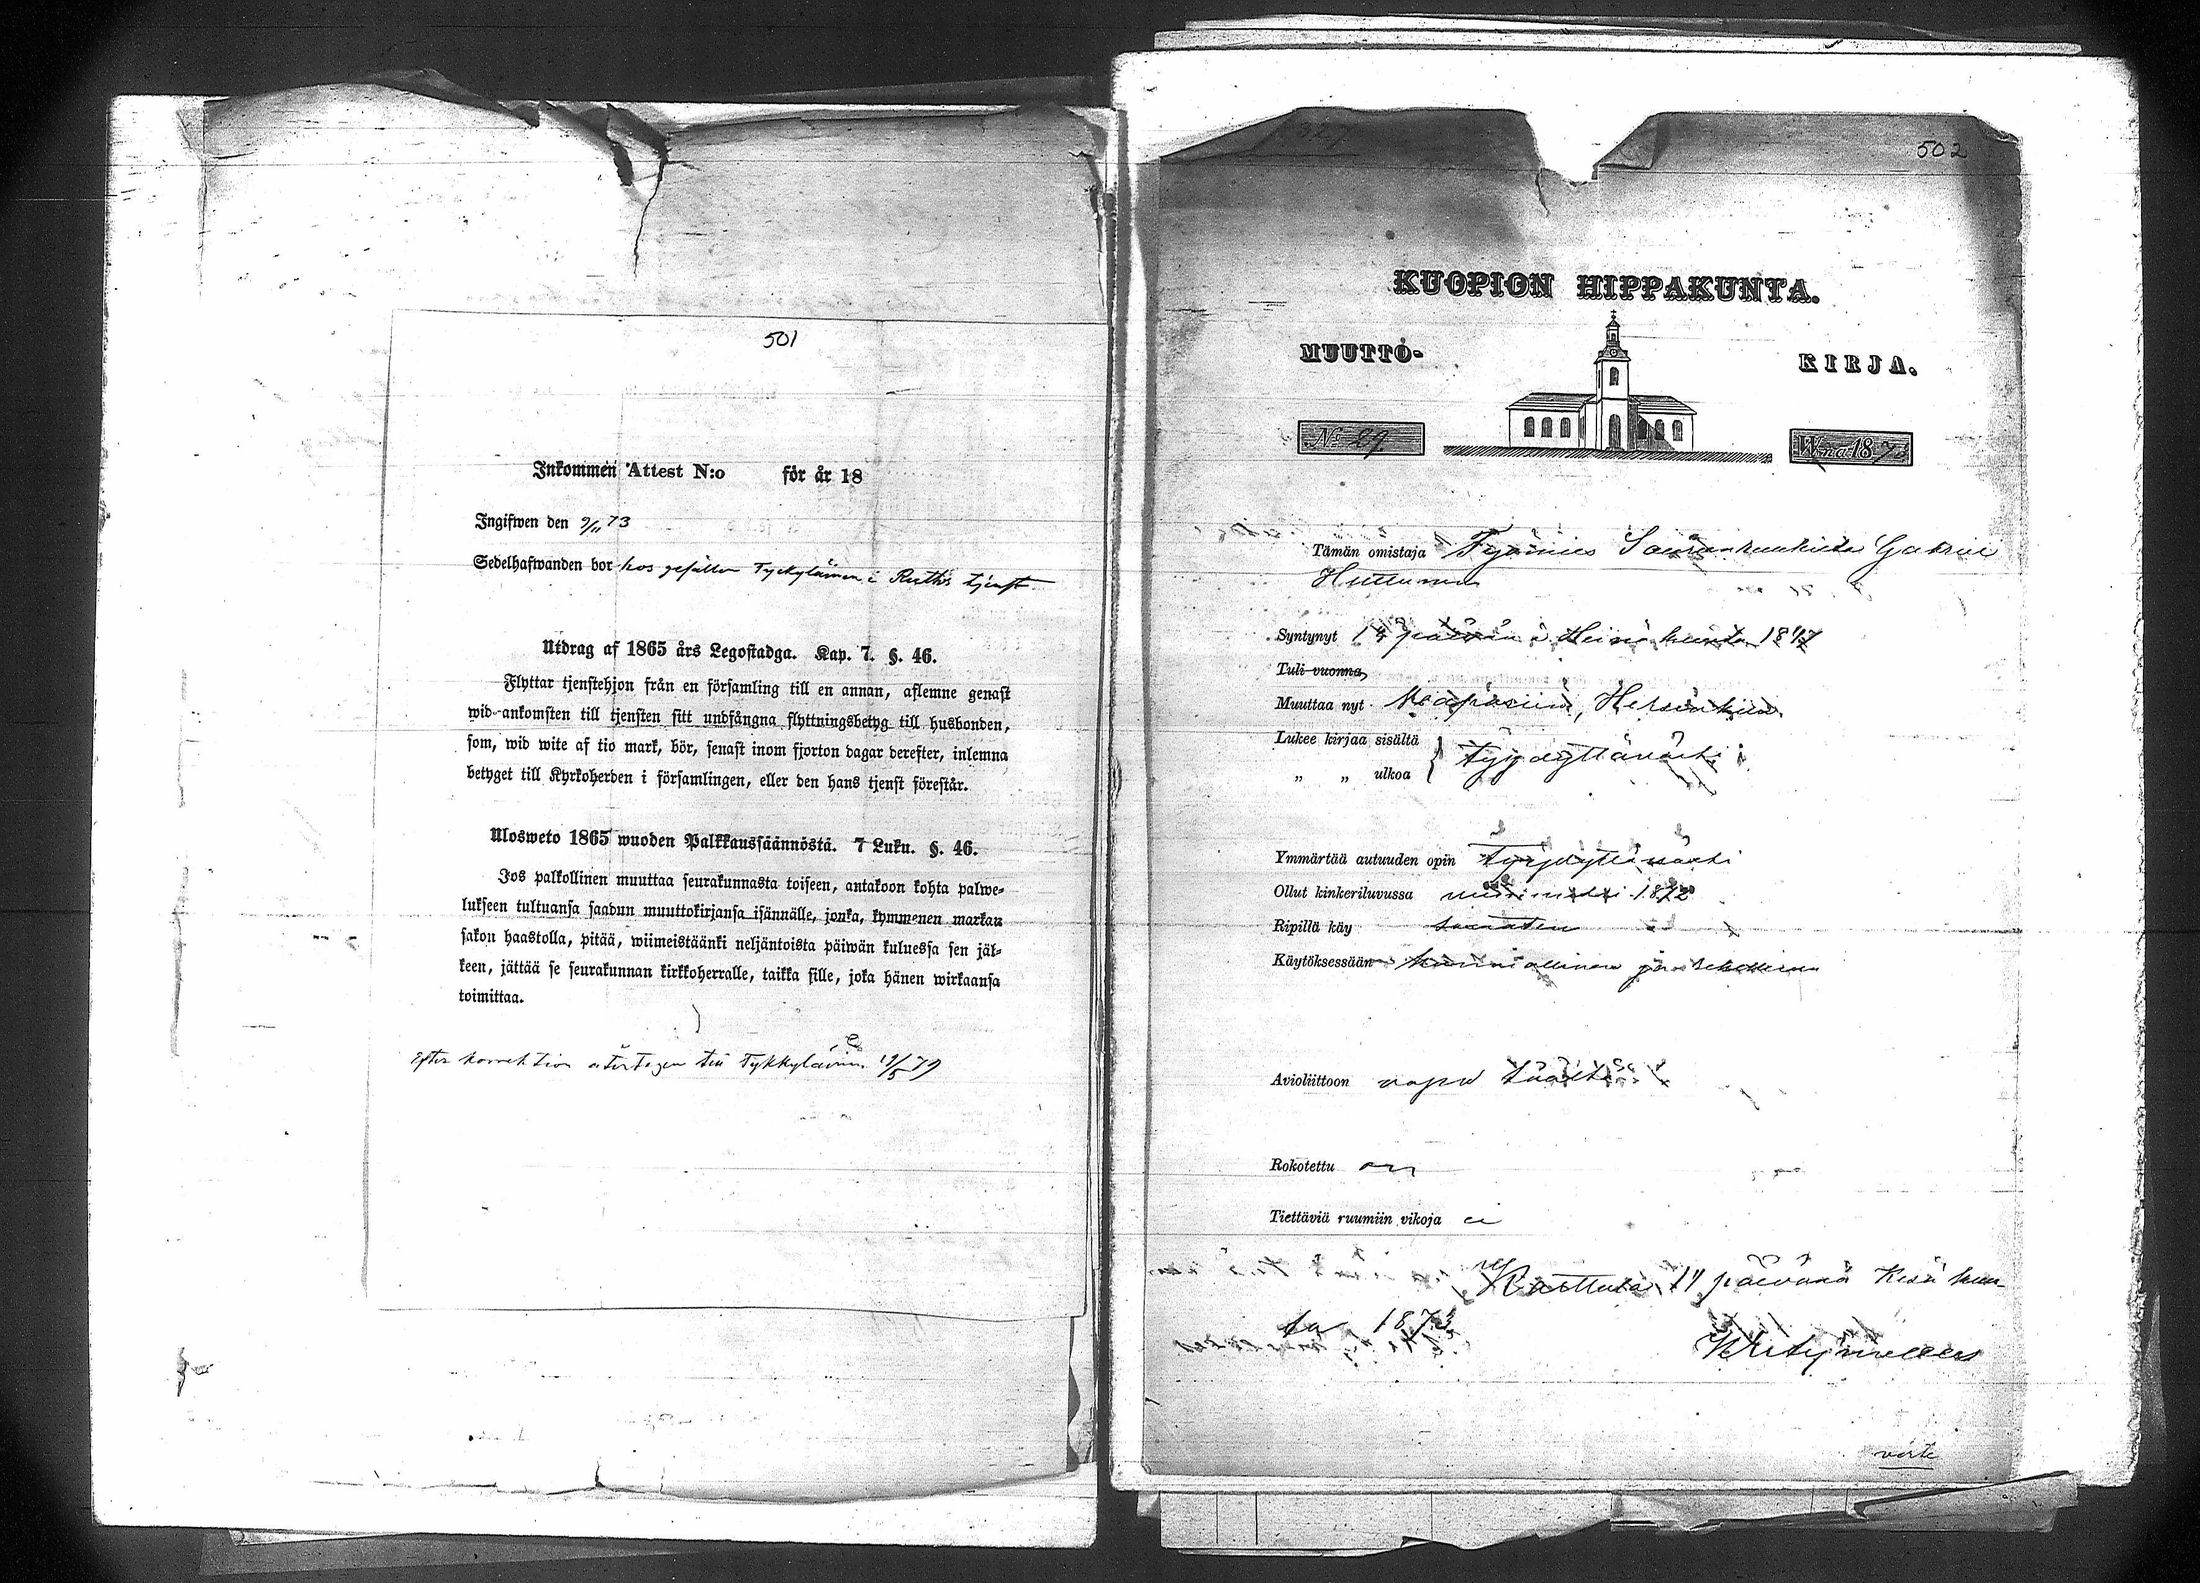 501
Inkommen Attest N:o för år 18
Ingifwen den 9/11 73
Sedelhafwanden bor hos Tyckyläinen i tjenst
Utdrag af 1865 års Legostadga. Kap. 7. §. 46.
Flyttar tjenstehjon från en församling till en annan, aflemne genast
wid ankomsten till tjensten sitt undfångna flyttningsbetyg till husbonden,
som, wid wite af tio mark, bör, senast inom fjorton dagar derefter, inlemna
betyget till Kyrkoherden i församlingen, eller den hans tjenst förestår.
Ulosweto 1865 wuoden Palkkaussäännöstä. 7 Luku. §. 46.
Jos palkollinen muuttaa seurakunnasta toiseen, antakoon kohta palwe-
lukseen tultuansa saadun muuttokirjansa isännälle, jonka, kymmenen markan
sakon haastolla, pitää, wiimeistäänki neljäntoista päiwän kuluessa sen jäl-
keen, jättää se seurakunnan kirkkoherralle, taikka sille, joka hänen wirkaansa
toimittaa.
Efter korrektion återtagen till Tykkyläinen 19/5 79
327
502
KUOPION HIPPAKUNTA.
MUUTTO- KIRJA.
No 29. W:na 1873
Tämän omistaja Työmies Gabriel
Huttunen
Syntynyt 14 päivän Heinäkuuta 1847
Tuli vuonna
Muuttaa nyt Helsinkiin
Lukee kirjaa sisältä tyydyttävästi
" " ulkoa
Ymmärtää autuuden opin tyydyttävästi
Ollut kinkeriluvussa viimiseksi 1872
Ripillä käy
Käytöksessään kunniallinen ja
Avioliittoon vapa
Rokotettu on
Tiettäviä ruumiin vikoja ei
Karttula 14 päivänä Kesäkuu-
ta 1873